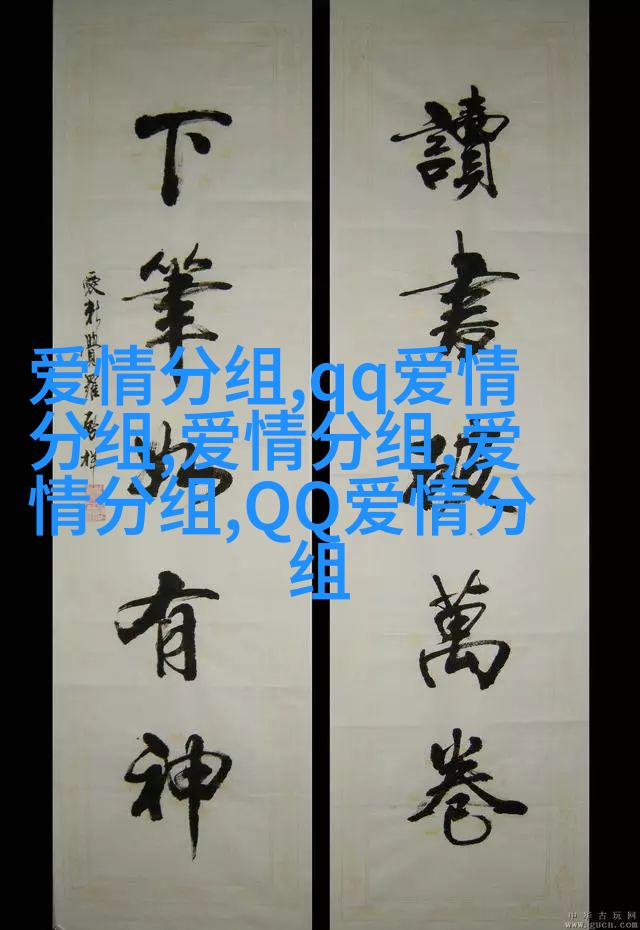 讀書破萬卷
下筆如有神
爱情分组,qq爱情
分组,爱情分组,爱
情分组,QQ爱情分
组
中华古玩网
www.gucn.com